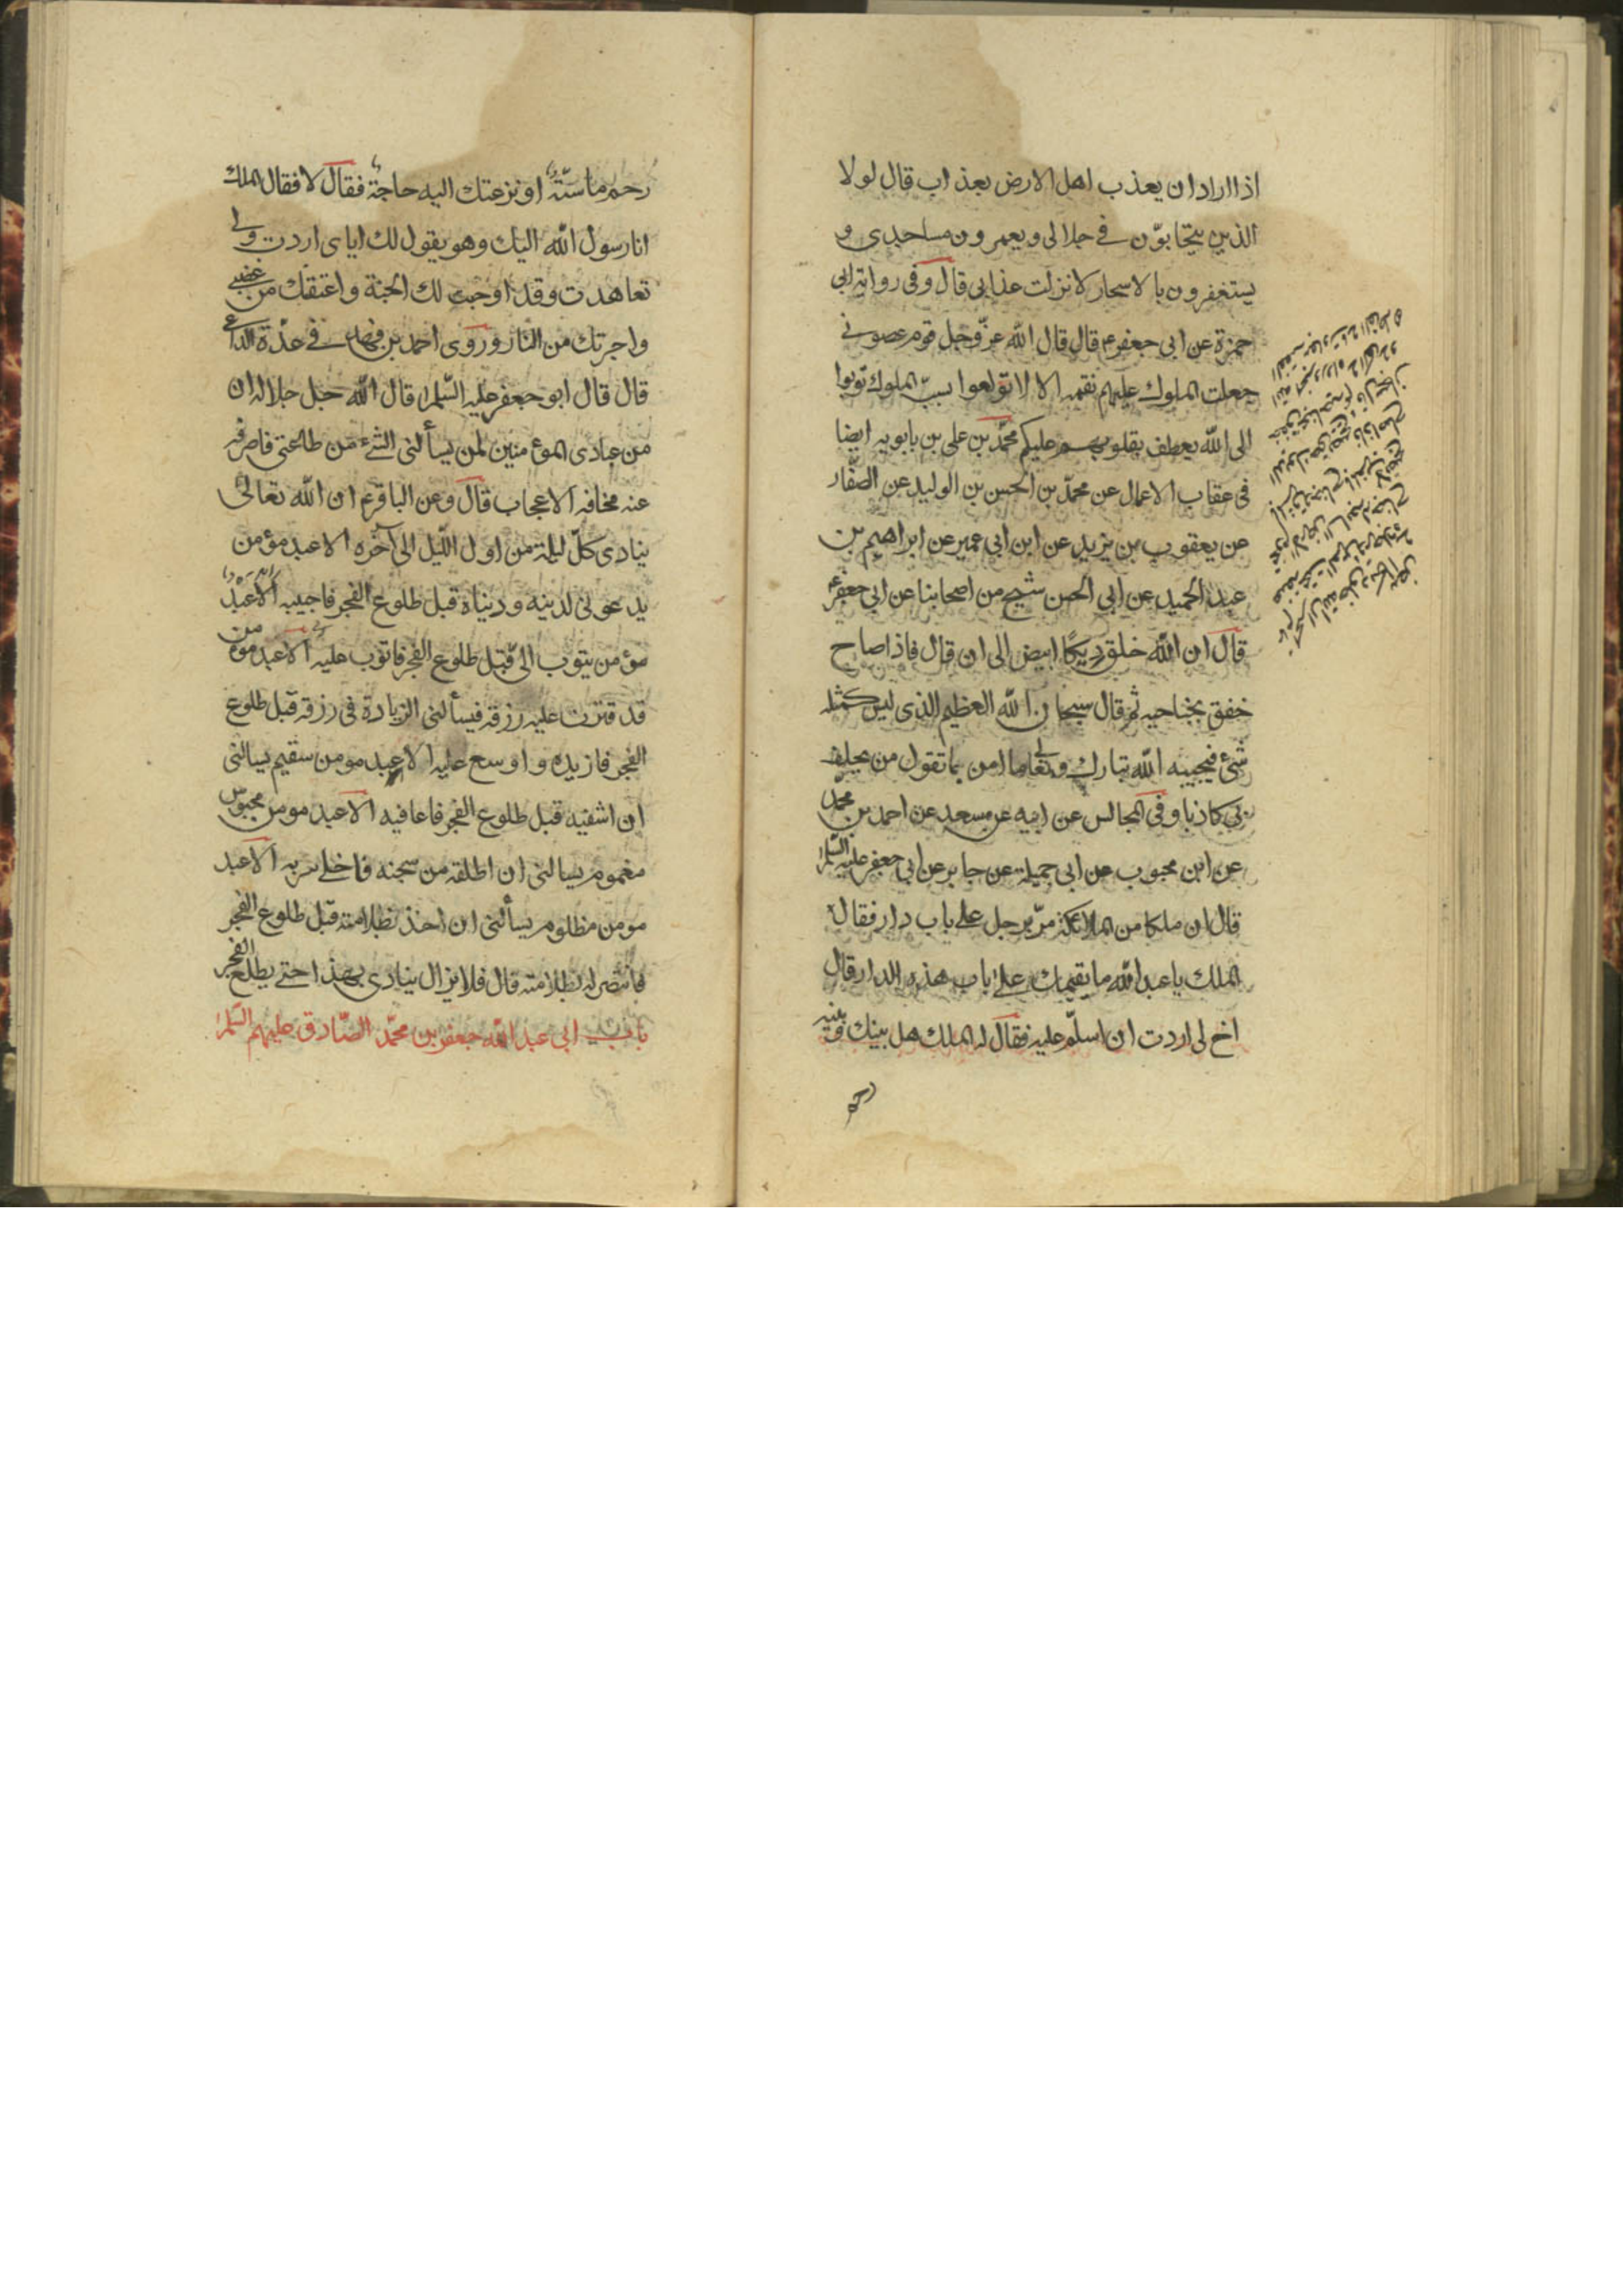 اذا اراد ان يعذب اهل الارض بعذاب قال لولا
الذين يتحابّون في جلالى ويعمرون مساجدى و
يستغفرون بالاسحار لانزلت عذابى قال وفى رواية ابى
حمزة عن ابى جعفر ع قال قال الله عزّ وجل قوم عصونى
جعلت الملوك عليهم نقمه الا لا تولعوا بسبّ الملوك توبوا
الى الله يعطف بقلوبهم عليكم محمّد بن على بن بابويه ايضا
فى عقاب الاعمال عن محمّد بن الحسن بن الوليد عن الصفّار
عن يعقوب بن يزيد عن ابن ابى عمير عن ابراهيم بن
عبد الحميد عن ابى الحسن شيخ من اصحابنا عن ابى جعفر ع
قال ان الله خلق ديكًا ابيض الى ان قال فاذا صاح
خفق بجناحيه ثم قال سبحان الله العظيم الذى ليس كمثله
شئ فيجيبه الله تبارك وتعالى ما امن بما تقول من يحلف
بى كاذبا وفى المجالس عن ابيه عن سعد عن احمد بن محمّد
عن ابن محبوب عن ابى جميلة عن جابر عن ابى جعفر عليه السّلم
قال ان ملكا من الملائكة مرّ برجل على باب دار فقال
الملك يا عبد الله ما يقيمك على باب هذه الدار قال
اخ لى اردت ان اسلّم عليه فقال له الملك هل بينك وبينه
رحم ماسّة او نزعتك اليه حاجة فقال لا فقال الملك
انا رسول الله اليك وهو يقول لك اياى اردت ولى
تعاهدت وقد اوجبت لك الجنة واعتقك من غضبى
واجرتك من النار وروى احمد بن فهد فى عدّة الداعى
قال قال ابو جعفر عليه السّلم قال الله جل جلاله ان
من عبادى المؤمنين لمن يسألنى الشئ من طاعتى فاصرفه
عنه مخافه الاعجاب قال وعن الباقر ع ان الله تعالى
ينادى كلّ ليلة من اول اللّيل الى آخره الا عبد مؤمن
يدعونى لدينه ودنياه قبل طلوع الفجر فاجيبه الا عبد
مؤمن يتوب الىّ قبل طلوع الفجر فاتوب عليه الا عبد مؤمن
قد قترت عليه رزقه فيسألنى الزيادة فى رزقه قبل طلوع
الفجر فازيده واوسع عليه الا عبد مومن سقيم يسالنى
ان اشفيه قبل طلوع الفجر فاعافيه الا عبد مومن محبوس
مغموم يسالنى ان اطلقه من سجنه فاخلى سربه الا عبد
مومن مظلوم يسألنى ان اخذ بظلامته قبل طلوع الفجر
فانتصر له بظلامته قال فلا يزال ينادى بهذا حتى يطلع الفجر
باب ابى عبد الله جعفر بن محمّد الصّادق عليهم السّلم